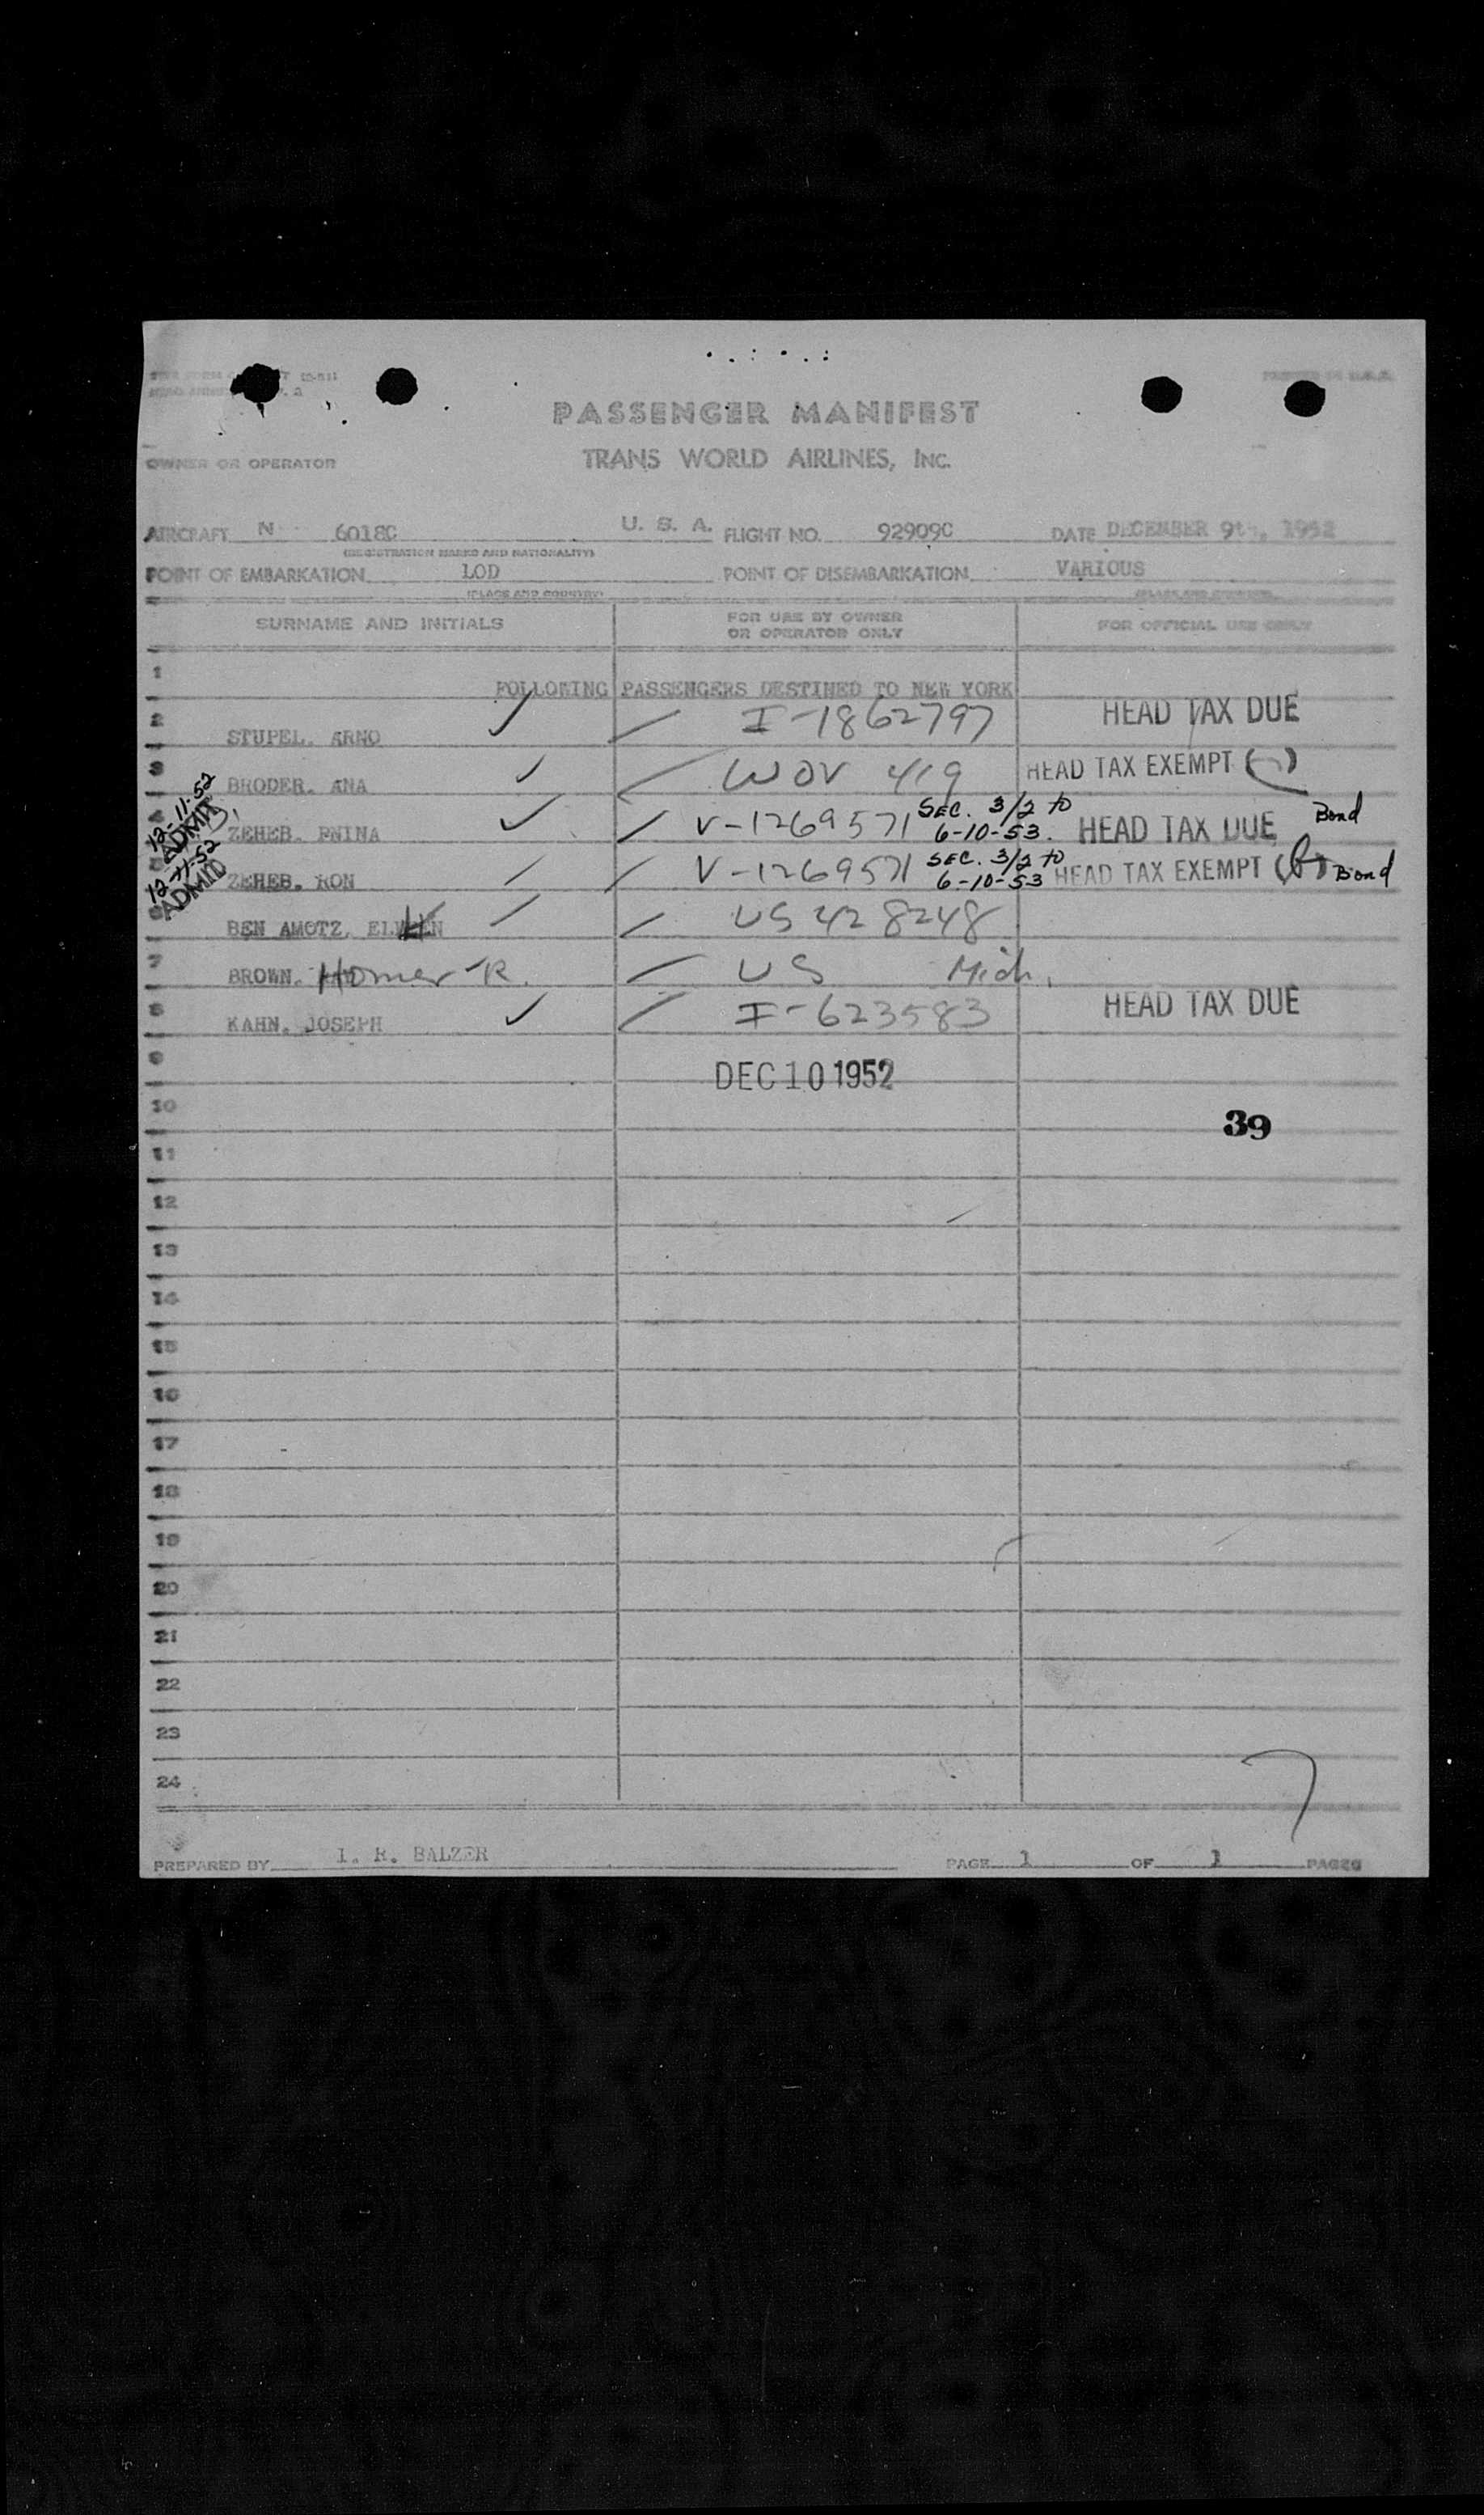 PRINTED IN U.S.A.
PASSENGER MANIFEST
OWNER OR OPERATOR TRANS WORLD AIRLINES, INC.
AIRCRAFT N 6018C U. S. A. FLIGHT NO. 92909C DATE DECEMBER 9th, 1952
(REGISTRATION MARKS AND NATIONALITY)
POINT OF EMBARKATION LOD POINT OF DISEMBARKATION VARIOUS
(PLACE AND COUNTRY) (PLACE AND COUNTRY)
SURNAME AND INITIALS FOR USE BY OWNER OR OPERATOR ONLY FOR OFFICIAL USE ONLY
1 FOLLOWING PASSENGERS DESTINED TO NEW YORK
2 STUPEL. ARNO I-1862797 HEAD TAX DUE
3 BRODER. ANA WOV 419 HEAD TAX EXEMPT ( )
12-11-52 ADMITD.
4 ZEHEB. PNINA V-1269571 SEC. 3/2 to 6-10-53. HEAD TAX DUE Bond
12-11-52 ADMITD
5 ZEHEB. RON V-1269571 SEC. 3/2 to 6-10-53 HEAD TAX EXEMPT (b) Bond
6 BEN AMOTZ. US 428248
7 BROWN. Homer R. US Mich.
8 KAHN. JOSEPH I-623583 HEAD TAX DUE
9 DEC 10 1952
10 39
11
12
13
14
15
16
17
18
19
20
21
22
23
24
7
PREPARED BY I. R. BALZER PAGE 1 OF 1 PAGES